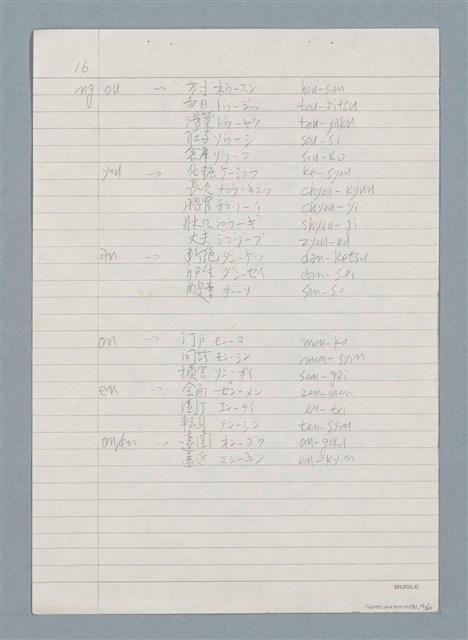 16
ng ou → 方寸 ホウースン hou-sun
当日 トウージツ tou-zitsu
湯薬 トウーヤク tou-yaku
壮士 ソウーシ sou-si
倉庫 ソウーコ sou-ko
you → 化粧 ケーショウ ke-syou
長久 チョウーキュウ chyou-kyuu
腸胃 チョウーイ chyou-yi
ショウーギ shyou-gi
丈夫 ジョウーブ zyou-bu
an → 断絶 ダンーゼツ dan-ketsu
ダンーセイ dan-sei
酸素 サンーソ san-so
on → 门戸 モンーコ mon-ko
问診 モンーシン mon-syin
損害 ソンーガイ son-gai
en → 全面 ゼンーメン zen-men
園丁 エンーテイ en-tei
転 テンーシン ten-syin
on/en → 遠国 オンーゴク on-goku
遠近 エンーキン en-kyin
BUGLE